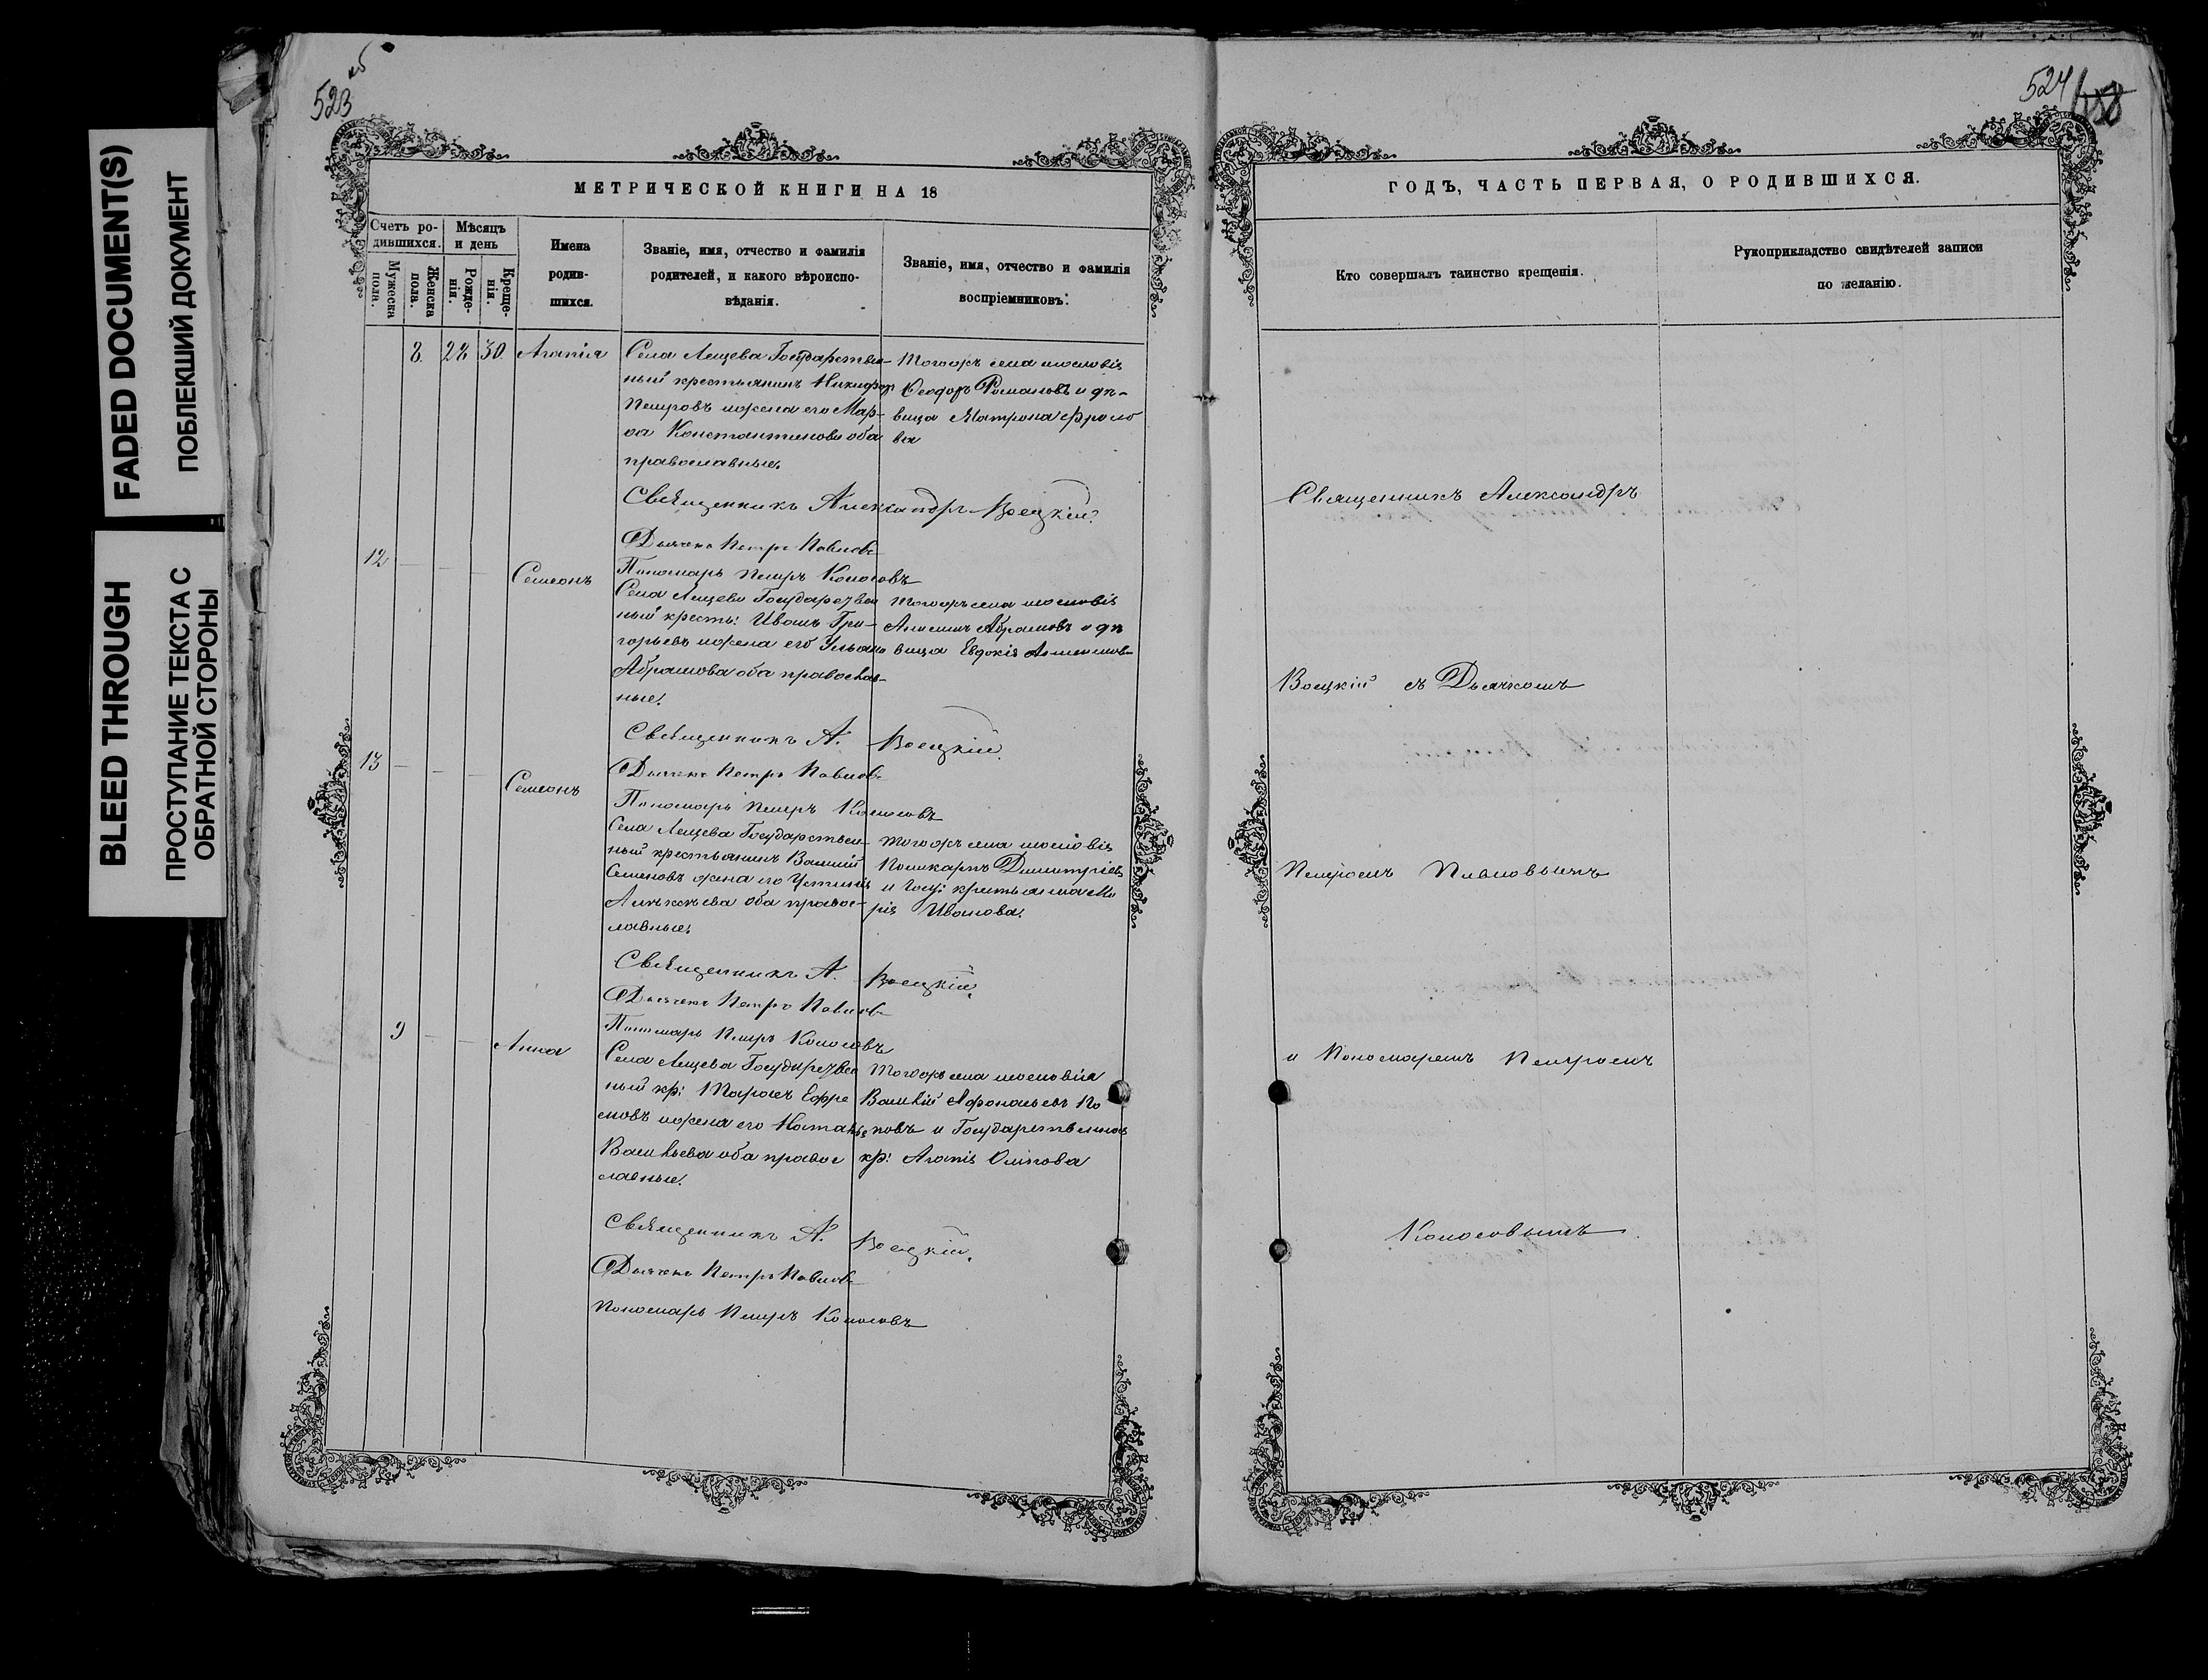 FADED DOCUMENT(S)
ПОБЛЕКШИЙ ДОКУМЕНТ
BLEED THROUGH
ПРОСТУПАНИЕ ТЕКСТА С
ОБРАТНОЙ СТОРОНЫ
523 об
МЕТРИЧЕСКОЙ КНИГИ НА 18
Счетъ ро-
дившихся.
Мужеска
пола.
Женска
пола.
Мѣсяцъ
и день
Рожде-
нія.
Креще-
нія.
Имена
родив-
шихся.
Званіе, имя, отчество и фамилія
родителей, и какого вѣроиспо-
вѣданія.
Званіе, имя, отчество и фамилія
воспріемниковъ.
8. 28 30. Агапія
Села Лещева Государствен-
ный крестьянинъ Никифор
Петровъ и жена его Мар-
ѳа Константинова оба
православные.
Тогожъ села
Ѳеодоръ Романовъ и дѣ-
вица Матрона Фроло
ва
Священникъ Александръ Воецкій.
Дьячекъ Петръ Павловъ
Пономарь Петръ Колосовъ
12 Симеонъ
Села Лещева Государствен
ный кресть: Иванъ Гри-
горьевъ и жена его Ульяна
Абрамова оба православ-
ные.
Тогожъ села
Абрамовъ и дѣ
вица Евдокія
Священникъ А. Воецкій.
Дьячекъ Петръ Павловъ
Пономарь Петръ Колосовъ
13 Симеонъ
Села Лещева Государствен-
ный крестьянинъ Василій
Семеновъ жена его Устинія
Алексѣева оба правос-
лавные.
Тогожъ села
Поликарпъ Димитріевъ
и Госу: крестьянка Ма
рія Иванова.
Священникъ А. Воецкій.
Дьячекъ Петръ Павловъ
Пономарь Петръ Колосовъ
9 Анна
Села Лещева Государствен
ный кр: Ефре
мовъ и жена его Наталья
Васильева оба правос
лавные.
Тогожъ села
Василій Афонасьевъ По
повъ и Государственная
кр: Агапія Осипова
Священникъ А. Воецкій.
Дьячекъ Петръ Павловъ
Пономарь Петръ Колосовъ
524
158
ГОДЪ, ЧАСТЬ ПЕРВАЯ, О РОДИВШИХСЯ.
Кто совершалъ таинство крещенія.
Рукоприкладство свидѣтелей записи
по желанію.
Священникъ Александръ
Воецкій съ Дьячкомъ
Петромъ Павловымъ
и Пономаремъ Петромъ
Колосовымъ